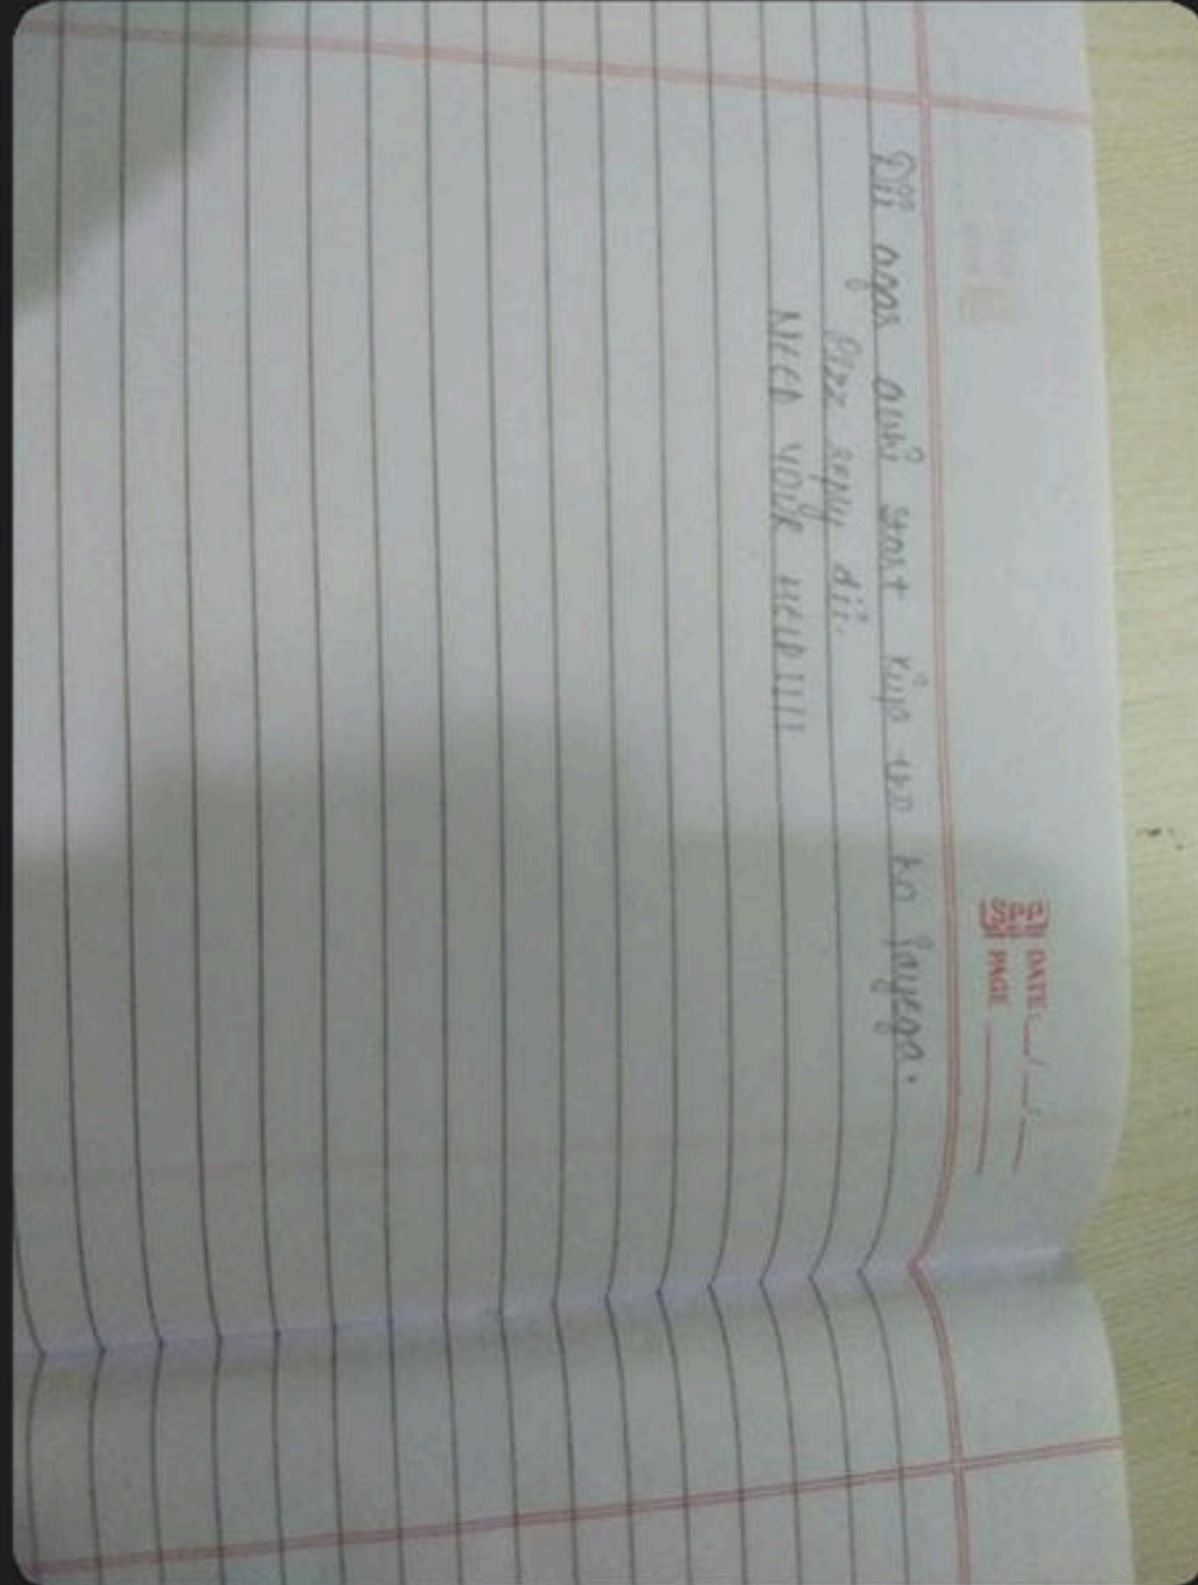 SPP DATE: __/__/__
PAGE ______
Dii agar abhi start kiya tho ho jayega.
Plzz reply dii.
NEED YOUR HELP!!!!